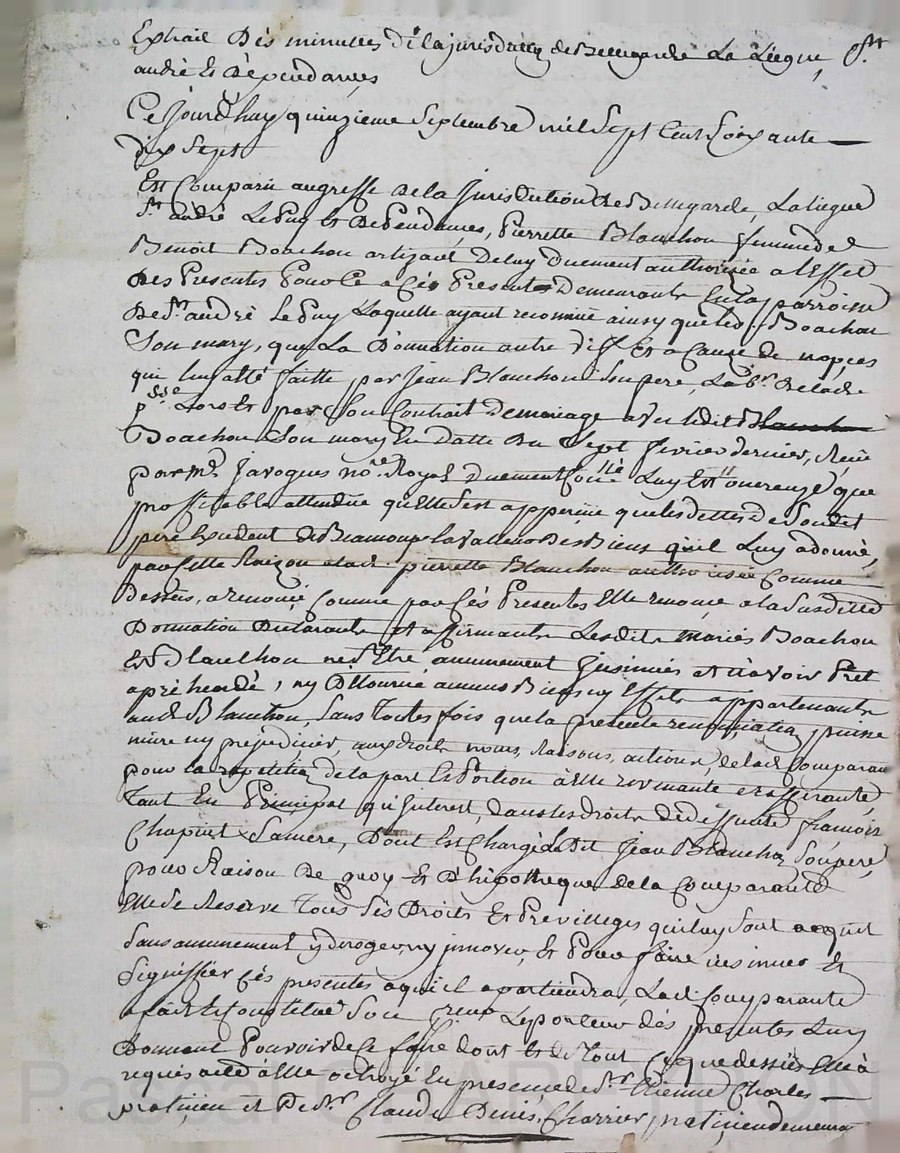 Extrait Dés minuttes de la jurisd.on de Bellegarde La Liegue, St
andré Et Dépendances
Ce jourdhuy quinzieme Septembre mil Sept Cent Soixante
dix Sept
Est Comparüe au greffe de la Jurisdiction de Bellegarde, La liegue
St andré Le Puy Et Dépendances, Pierrette Blanchon femme de
Benoit Boachon artizant De luy Duement authorizée a L'Effet
Des Presentes Pour Ce a Cés Presentes Demeurants En la parroisse
De St andré Le Puy Laquelle ayant reconnue ainsy que led. Boachon
Son mary, que La Donnation entre vifs Et a Cauze de nopces
qui luy a êté faitte par Jean Blanchon Son pere, Lab.r De lad.
p.sse Lors Et par Son Contrait de mariage avec ledit
Boachon Son mary En datte Du Sept fevrier dernier, Recu
par me Javogues no.re Royal Duement Luy Est onereuze que
proffitable attendue qu'Elle S'est apperçüe que les dettes de Sondit
pere Excedent de Beaucoup La valleur Des Biens qu'il Luy a donné,
par Cette Raizon Lad. pierrette Blanchon authorisée Comme
dessus, a renoncé, Comme par Cés Presentes Elle renonce a la Susditte
Donnation Declarants Et affirmants Lesdits mariés Boachon
Et Blanchon ne S'Etre aucunement Jmmiscés et n'avoir Pris
aprehendé, ny Détourné aucuns Biens ny Effets appartenants
aud. Blanchon, Sans Toutes fois que la presente renonciation, puisse
nuire ny prejudicier, aux droits noms, Raisons, actions, de lad. Comparante
pour la repetition de la part Et Portion à Elle revenante et afferante
Tant En Principal qu'Interest, dans les Droits de déffunte françoise
Chapuet Sa mere, Dont Est Chargé Ledit Jean Blanchon Son pere,
pour Raison De quoy Et D'hipotheque de la Comparante
Elle Se Reserve Tous Sés Droits Et Previlleges qui luy Sont acquit
Sans aucunement y deroger, ny jnnover, Et Pour faire insinuer Et
Signiffier Cés presentes a qui il apartiendra, Lad. Comparante
a fait Et Constitué Son Le porteur dés presentes Luy
Donnant Pouvoir de Ce faire dont Et de Tout Ce que dessus Elle a
requis acte a Elle octroyé En presence de Sr Etienne Charles
praticien et De Sr Claude Denis Charrier, praticien demeurant
Pascal CHAPERON